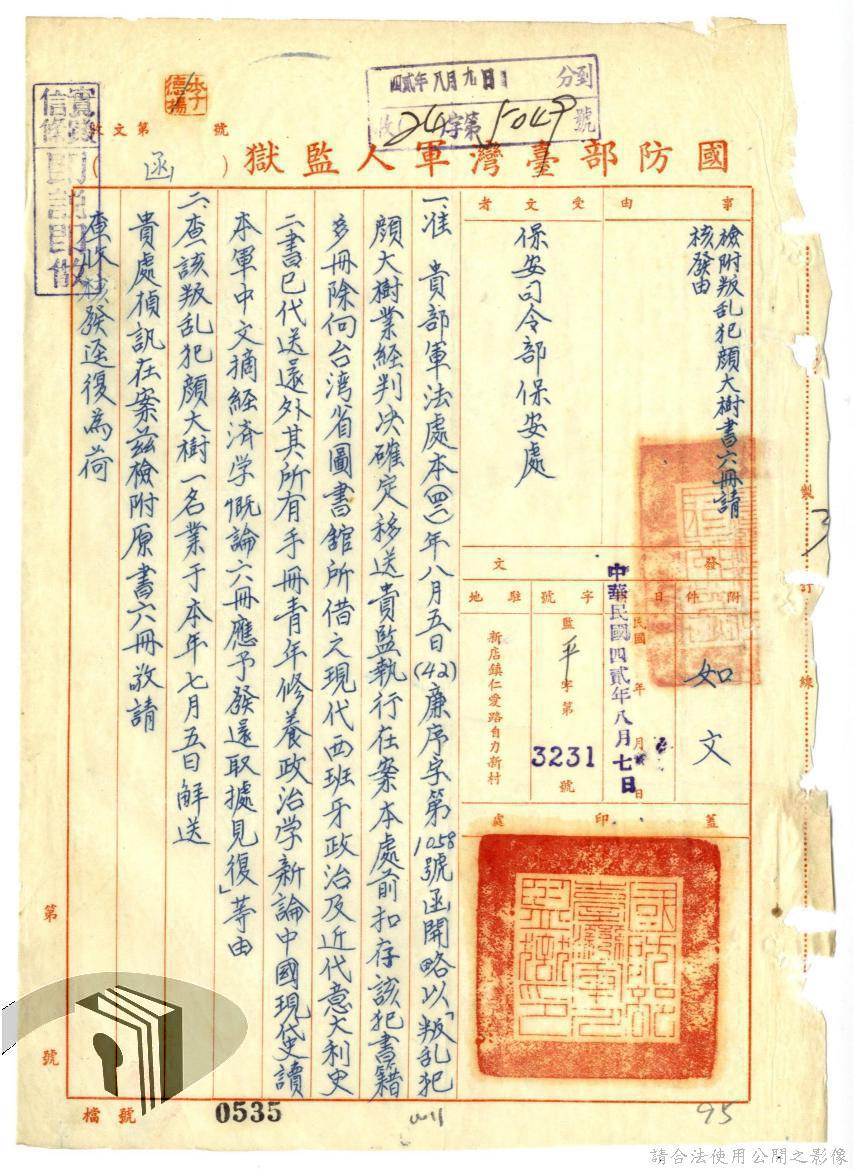 國防部臺灣軍人監獄
(函)
收文第 號
李德揚
四貳年八月九日 到
收24字第5049號
實踐信條
事由
檢附叛乱犯顏大樹書六冊請
核發由
受文者
保安司令部保安處
發文
附件
如文
日
中華民國四貳年八月七日
字號
監平字第3231號
駐地
新店鎮仁愛路自力新村
蓋印處
國防部臺灣軍人監獄印
一、准 貴部軍法處本(四二)年八月五日(42)廉序字第1058號函開略以「叛乱犯
顏大樹業經判决確定移送貴監執行在案本處前扣存該犯書籍
多冊除向台湾省圖書舘所借之現代西班牙政治及近代意大利史
二書已代送還外其所有手冊青年修養政治学新論中國現代史讀
本軍中文摘經済学概論六冊應予發還取據見復」等由
二、查該叛乱犯顏大樹一名業于本年七月五日解送
貴處偵訊在案茲檢附原書六冊敬請
查收核發逕復為荷
製訂線
3
第 號
檔號
0535
95
請合法使用公開之影像